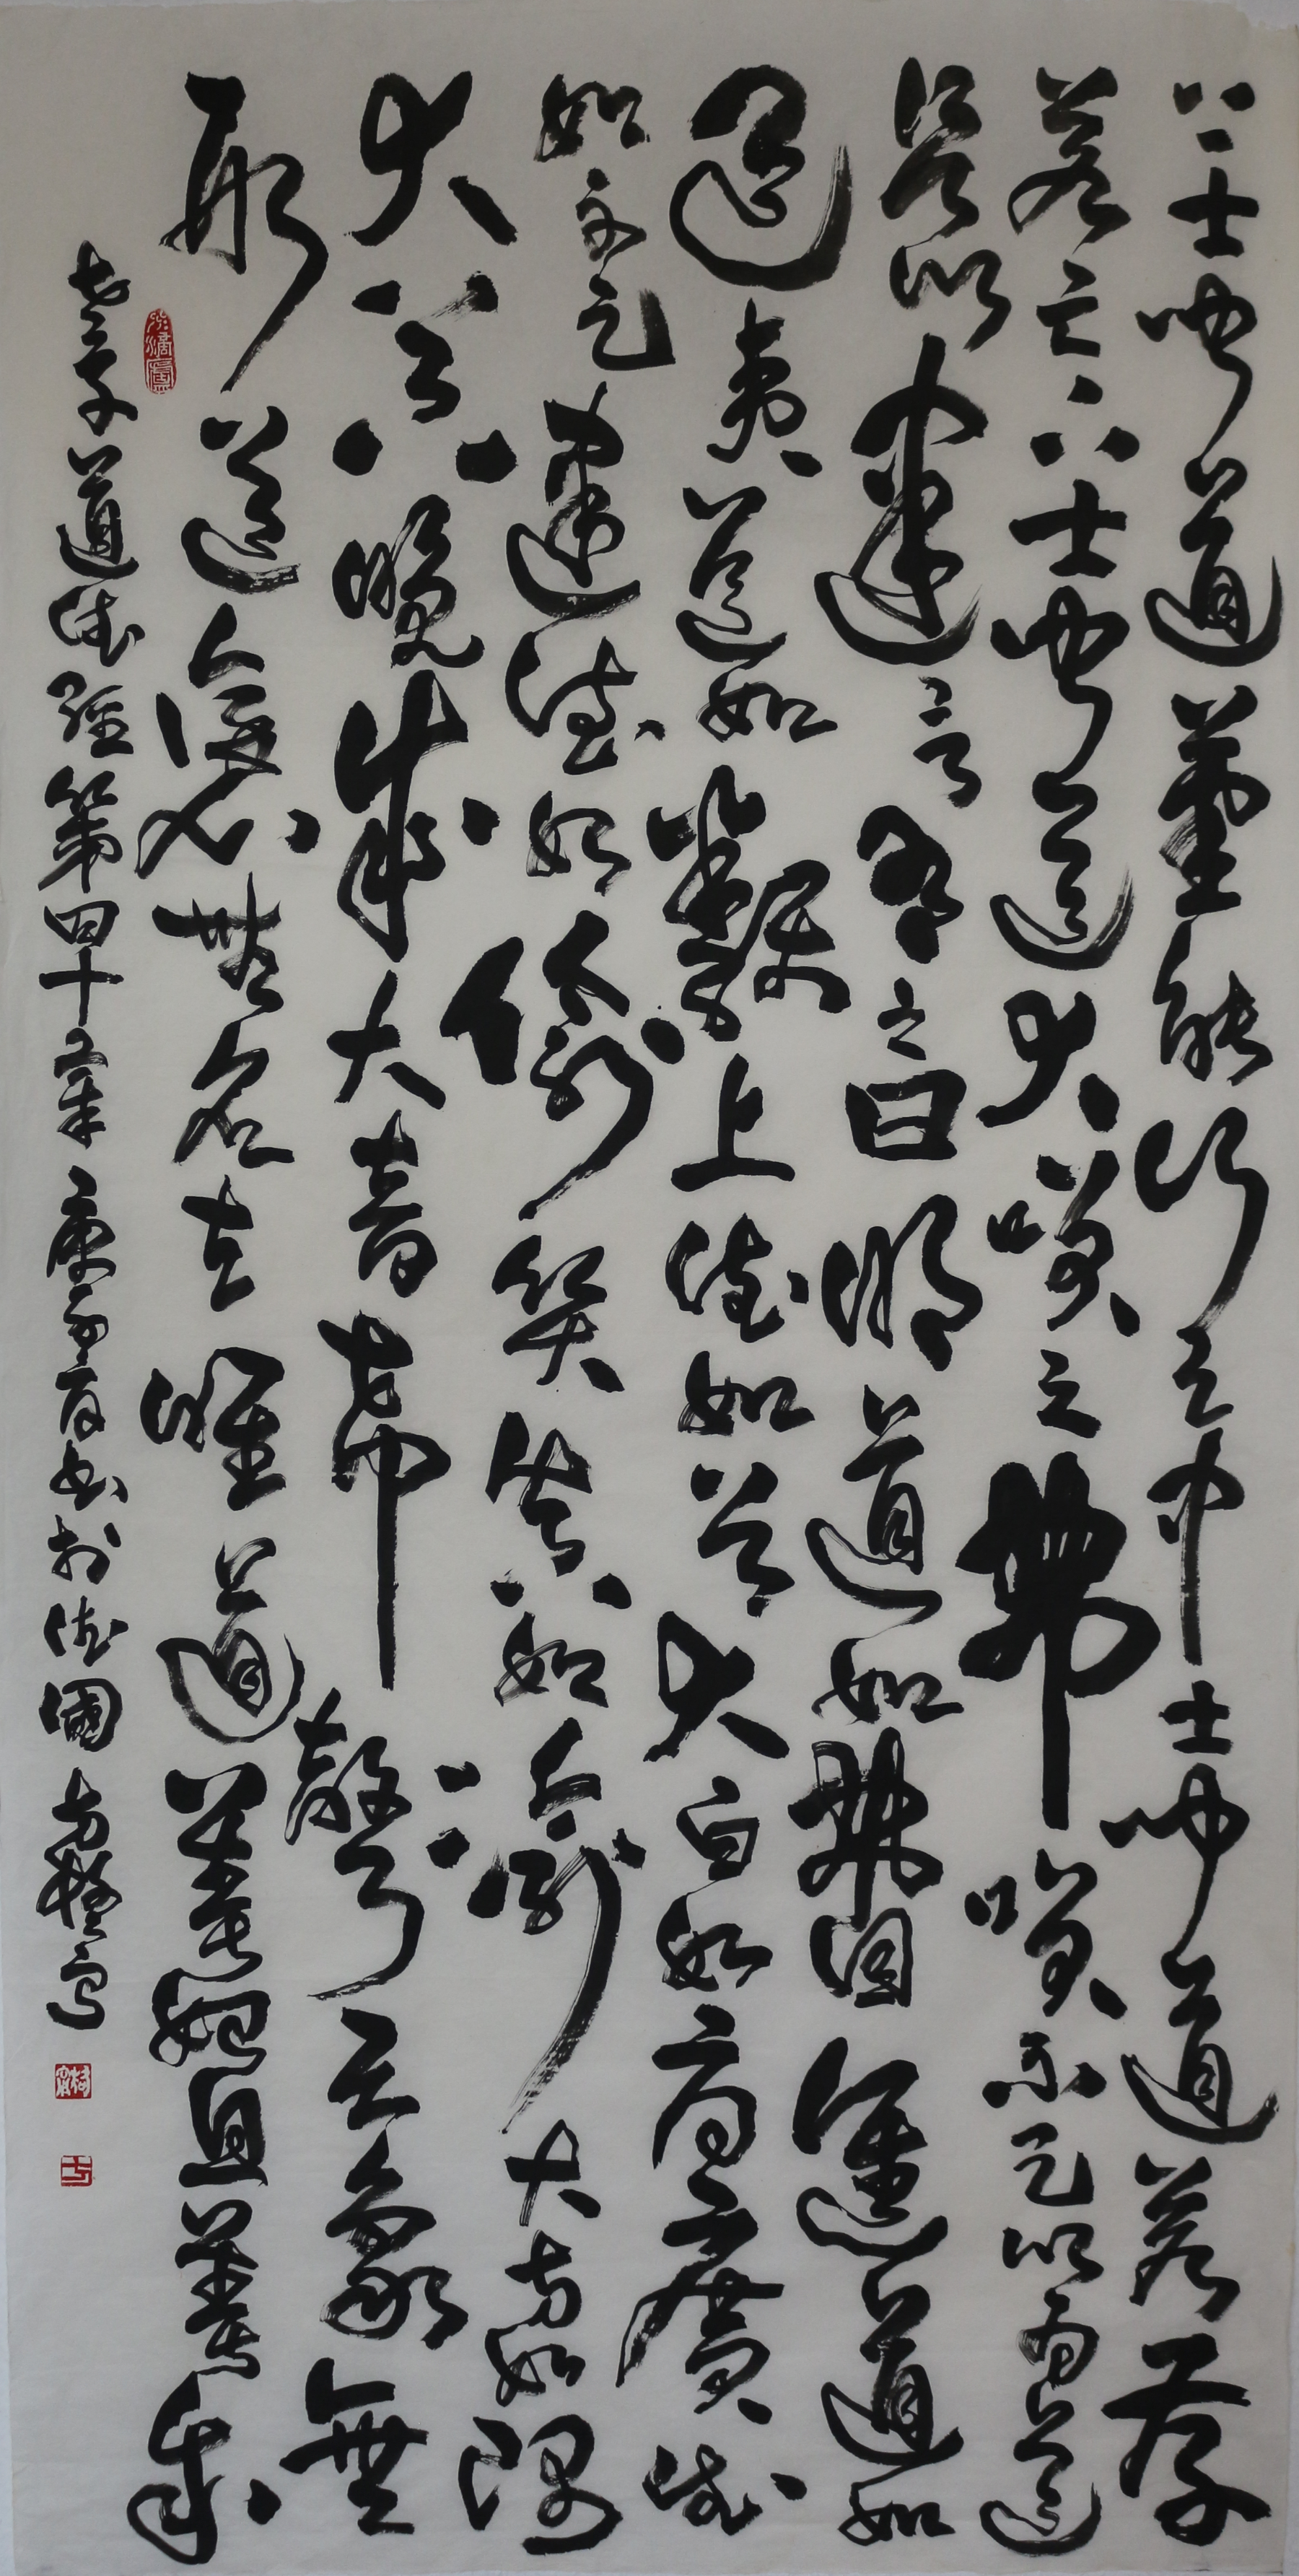 上士聞道堇能行之中士聞道若存
若亡下士聞道大咲之弗咲不足以為道
是以建言有之曰明道如費進道如
退夷道如類上德如谷大白如辱廣德
如不足建德如偷質真如渝大方如隅
大器晚成大音希聲天象無
形道隱無名夫唯道善始且善成
老子道德經第四十章庚子夏書於德國方